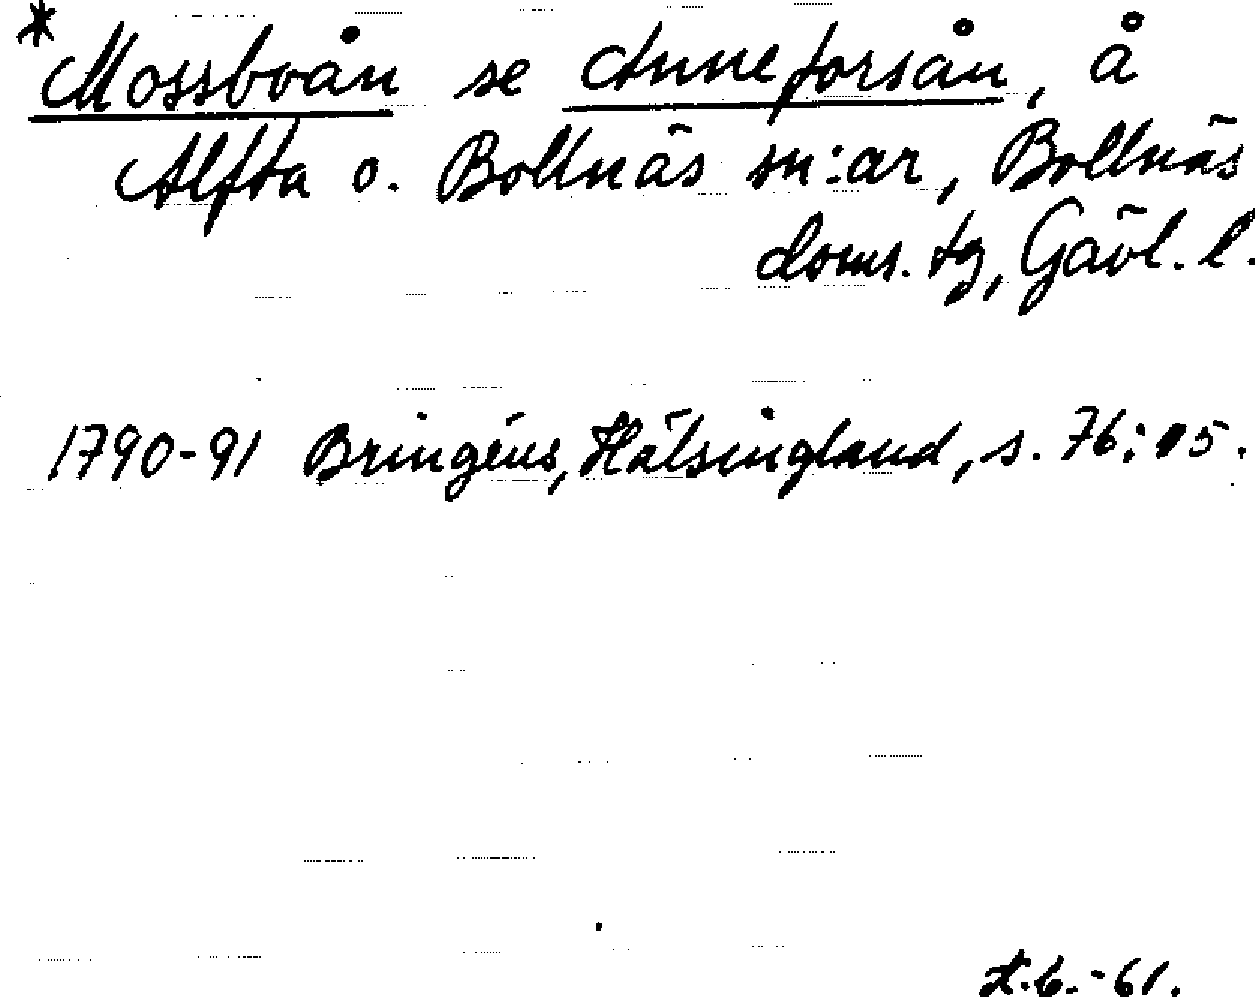 *Mossboån se Anneforsån, å
Alfta o. Bollnäs sn:ar, Bollnäs
doms. tg, Gävl. l.
1790-91 Bringéus, Hälsingland, s. 76; 95.
-61.